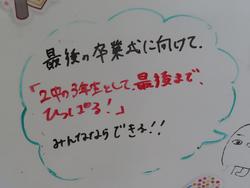 最後の卒業式に向けて、
「2中の3年生として、最後まで、
ひっぱる!」
みんなならできる!!